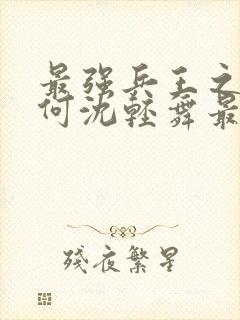 最强兵王之
何沈轻舞最
残夜繁星